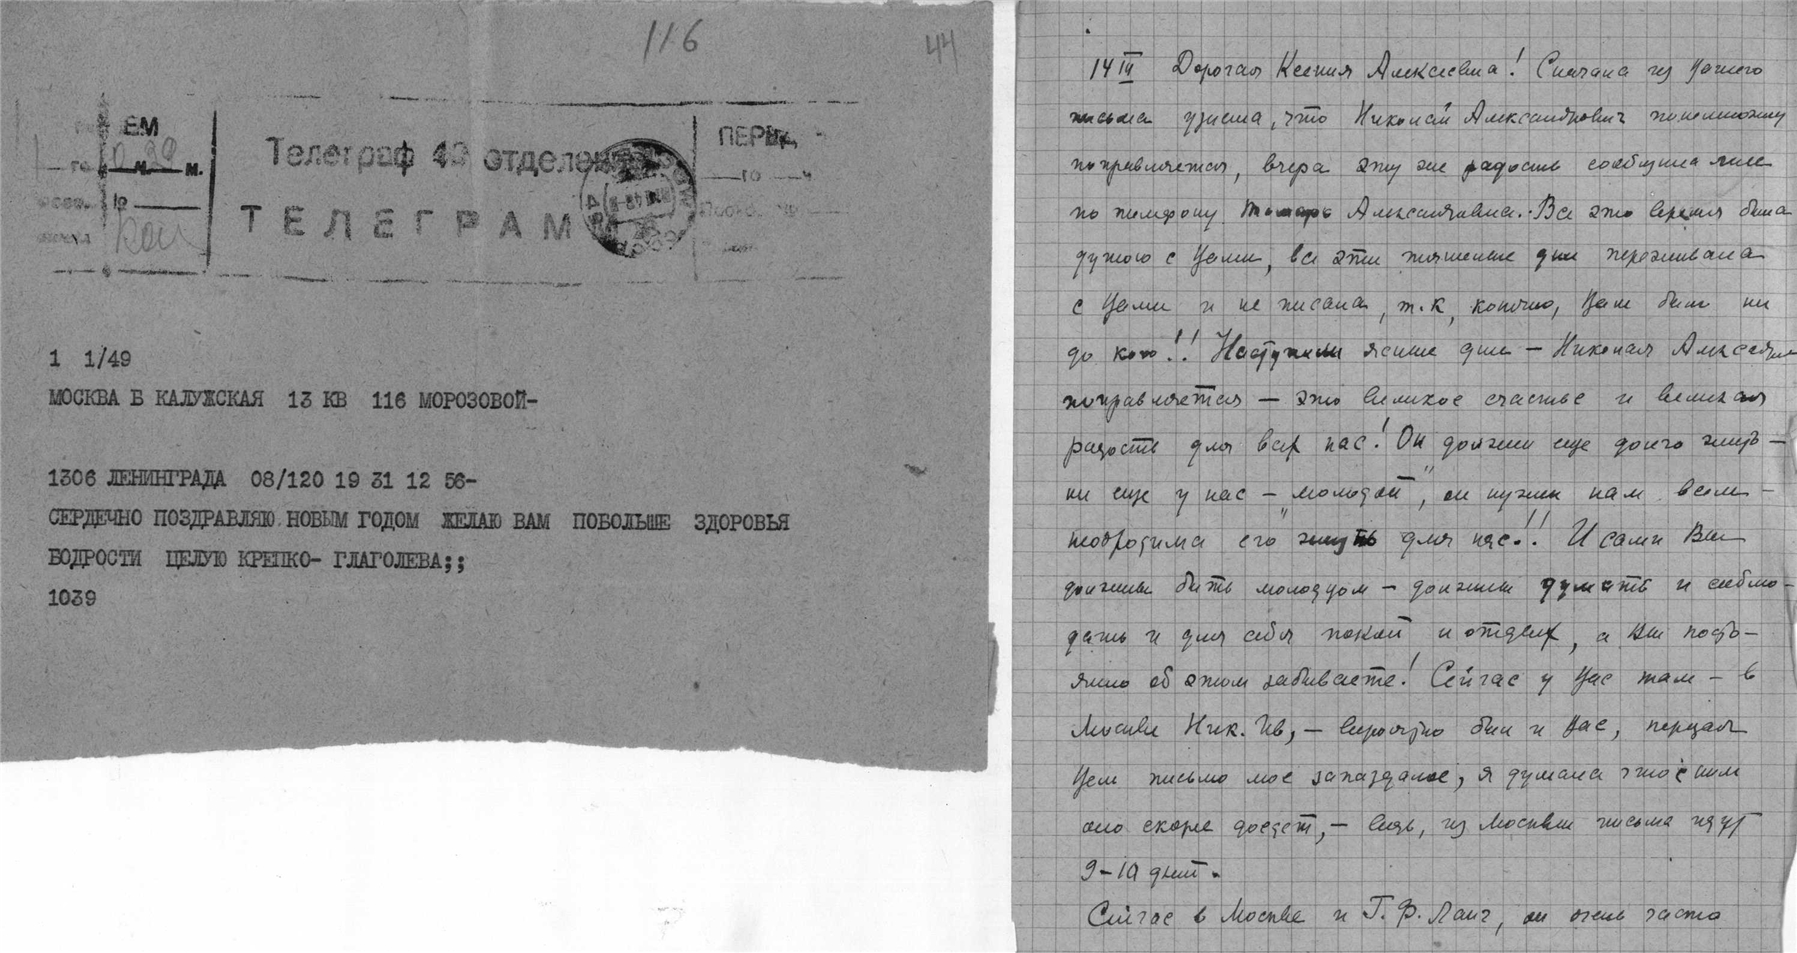 116
44
ЕМ
го ч. м.
Телеграф 49 отделен
ПЕРЕД.
го ч
ТЕЛЕГРАММ
1 1/49
МОСКВА Б КАЛУЖСКАЯ 13 КВ 116 МОРОЗОВОЙ-
1306 ЛЕНИНГРАДА 08/120 19 31 12 56-
СЕРДЕЧНО ПОЗДРАВЛЯЮ НОВЫМ ГОДОМ ЖЕЛАЮ ВАМ ПОБОЛЬШЕ ЗДОРОВЬЯ
БОДРОСТИ ЦЕЛУЮ КРЕПКО- ГЛАГОЛЕВА;;
1039
14 III Дорогая Ксения Алексеевна! Сначала из Вашего
письма узнала, что Николай Александрович понемножку
поправляется, вчера эту же радость сообщила мне
по телефону Александровна. Все это время была
душою с Вами, все эти тяжелые дни переживала
с Вами и не писала, т.к, конечно, Вам было ни
до кого!! Наступили ясные дни – Николай
поправляется – это великое счастье и великая
радость для всех нас! Он должен еще долго жить –
он еще у нас – "молодой", он нужен нам всем –
необходима его "жить" для нас!! И сами Вы
должны быть молодцом – должны думать и соблю-
дать и для себя покой и отдых, а Вы посто-
янно об этом забываете! Сейчас у Вас там – в
Москве Ник. Ив, – вероятно был и Вас, передал
Вам письмо мое запоздалое, я думала что с ним
оно скорее дойдет, – ведь, из Москвы письма идут
9–10 дней.
Сейчас в Москве и Г. Ф. Ланг, он очень часто